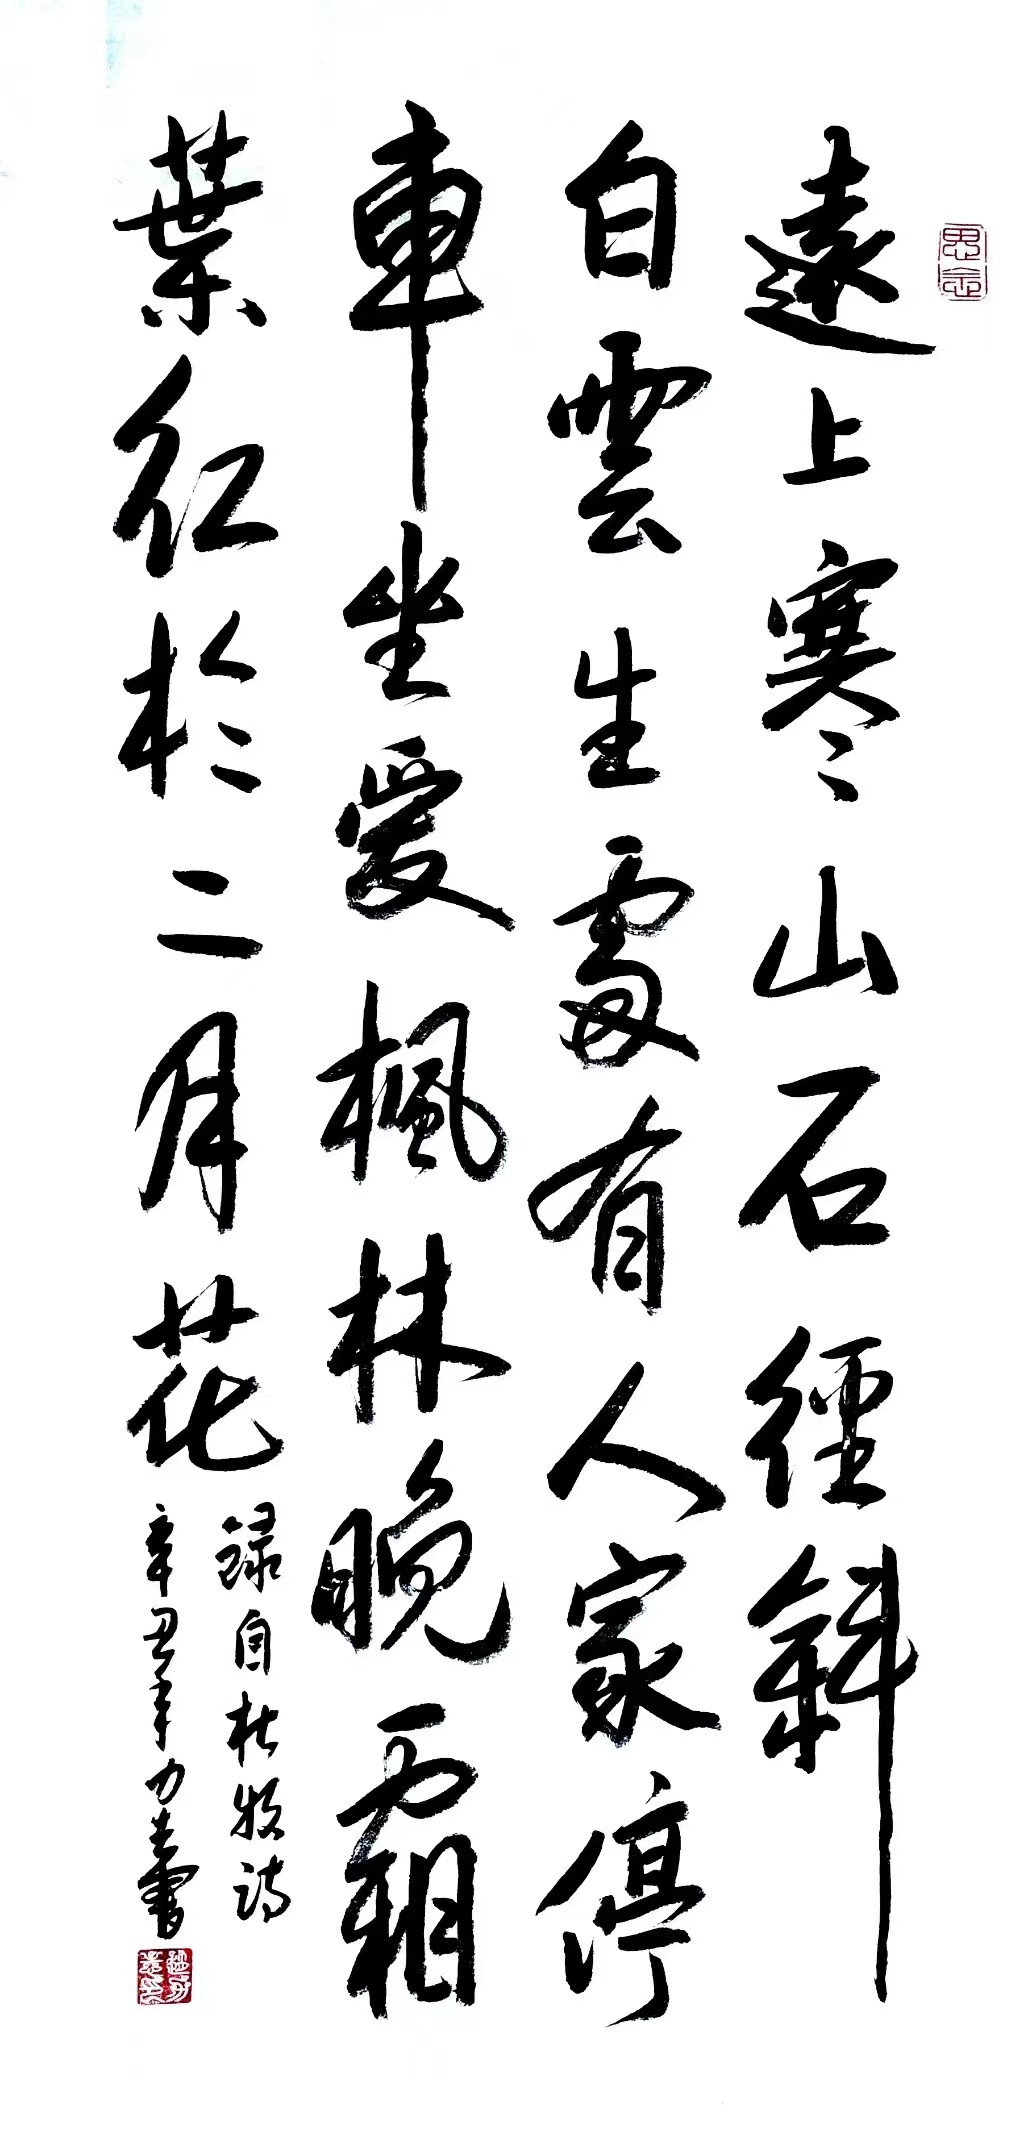 思念
遠上寒山石徑斜
白雲生處有人家停
車坐愛楓林晚霜
葉紅於二月花
錄自杜牧詩
辛丑年力書